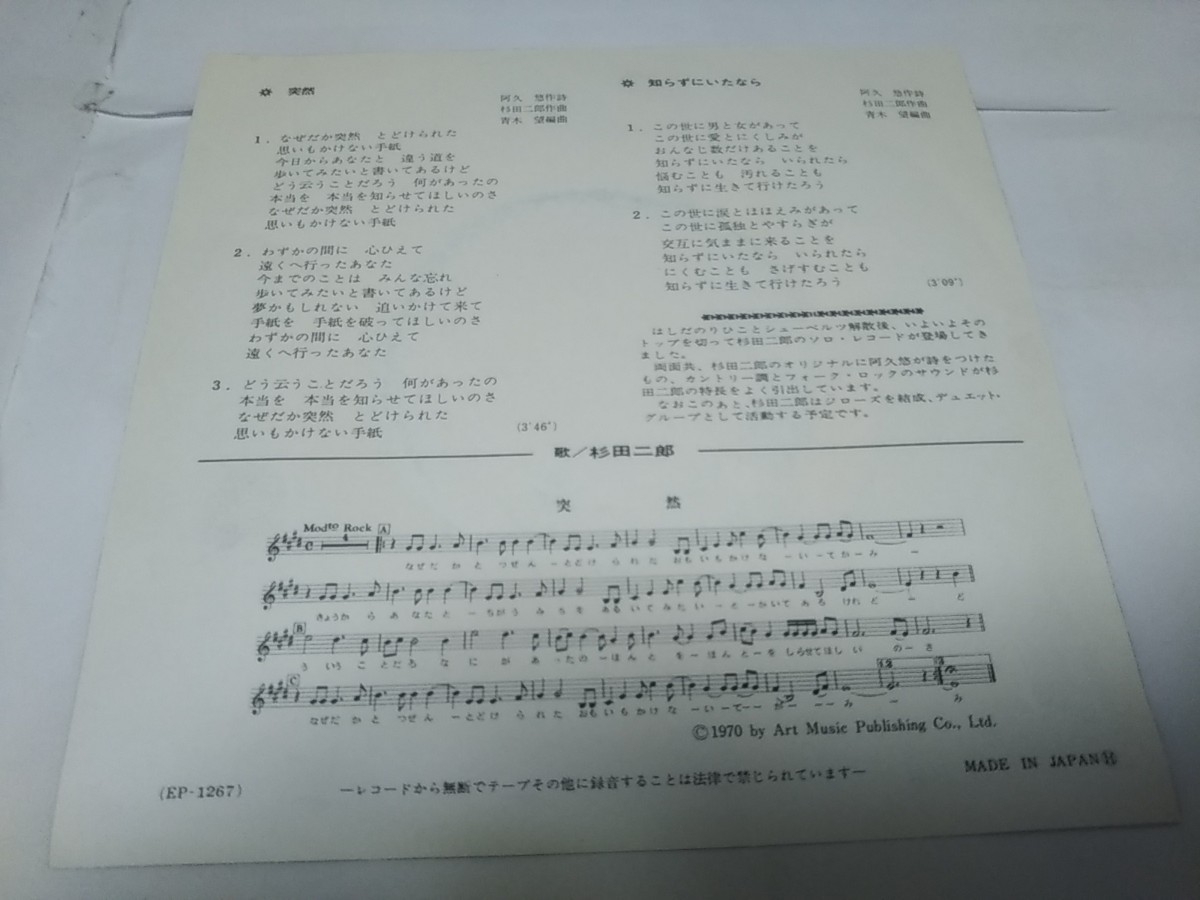 突然
阿久 悠作詩
杉田二郎作曲
青木 望編曲
1. なぜだか突然 とどけられた
思いもかけない手紙
今日からあなたと 違う道を
歩いてみたいと書いてあるけど
どう云うことだろう 何があったの
本当を 本当を知らせてほしいのさ
なぜだか突然 とどけられた
思いもかけない手紙
2. わずかの間に 心ひえて
遠くへ行ったあなた
今までのことは みんな忘れ
歩いてみたいと書いてあるけど
夢かもしれない 追いかけて来て
手紙を 手紙を破ってほしいのさ
わずかの間に 心ひえて
遠くへ行ったあなた
3. どう云うことだろう 何があったの
本当を 本当を知らせてほしいのさ
なぜだか突然 とどけられた
思いもかけない手紙
(3'46")
知らずにいたなら
阿久 悠作詩
杉田二郎作曲
青木 望編曲
1. この世に男と女があって
この世に愛とにくしみが
おんなじ数だけあることを
知らずにいたなら いられたら
悩むことも 汚れることも
知らずに生きて行けたろう
2. この世に涙とほほえみがあって
この世に孤独とやすらぎが
交互に気ままに来ることを
知らずにいたなら いられたら
にくむことも さげすむことも
知らずに生きて行けたろう
(3'09")
はしだのりひことシューベルツ解散後、いよいよその
トップを切って杉田二郎のソロ・レコードが登場してき
ました。
両面共、杉田二郎のオリジナルに阿久悠が詩をつけた
もの、カントリー調とフォーク・ロックのサウンドが杉
田二郎の特長をよく引出しています。
なおこのあと、杉田二郎はジローズを結成、デュエット・
グループとして活動する予定です。
歌/杉田二郎
突 然
Modto Rock A
4
なぜだ か と つぜん ーとどけ られた おもいもかけ な ーいーてがーみ ー
きょうか ら あ なた と ーちがう み ち を ある いて み たい ーとーかいて あ る けれ ど ー ど
B
う いう こ とだろ な に が あ ったの ーほん と をーほんとーを しらせてほし い のーさ
C
1.2. 3
なぜだ か と つぜん ーとどけ られた おもいもかけ な ーいーてーー がーーーみ ー み
©1970 by Art Music Publishing Co., Ltd.
MADE IN JAPAN
(EP-1267)
ーレコードから無断でテープその他に録音することは法律で禁じられていますー